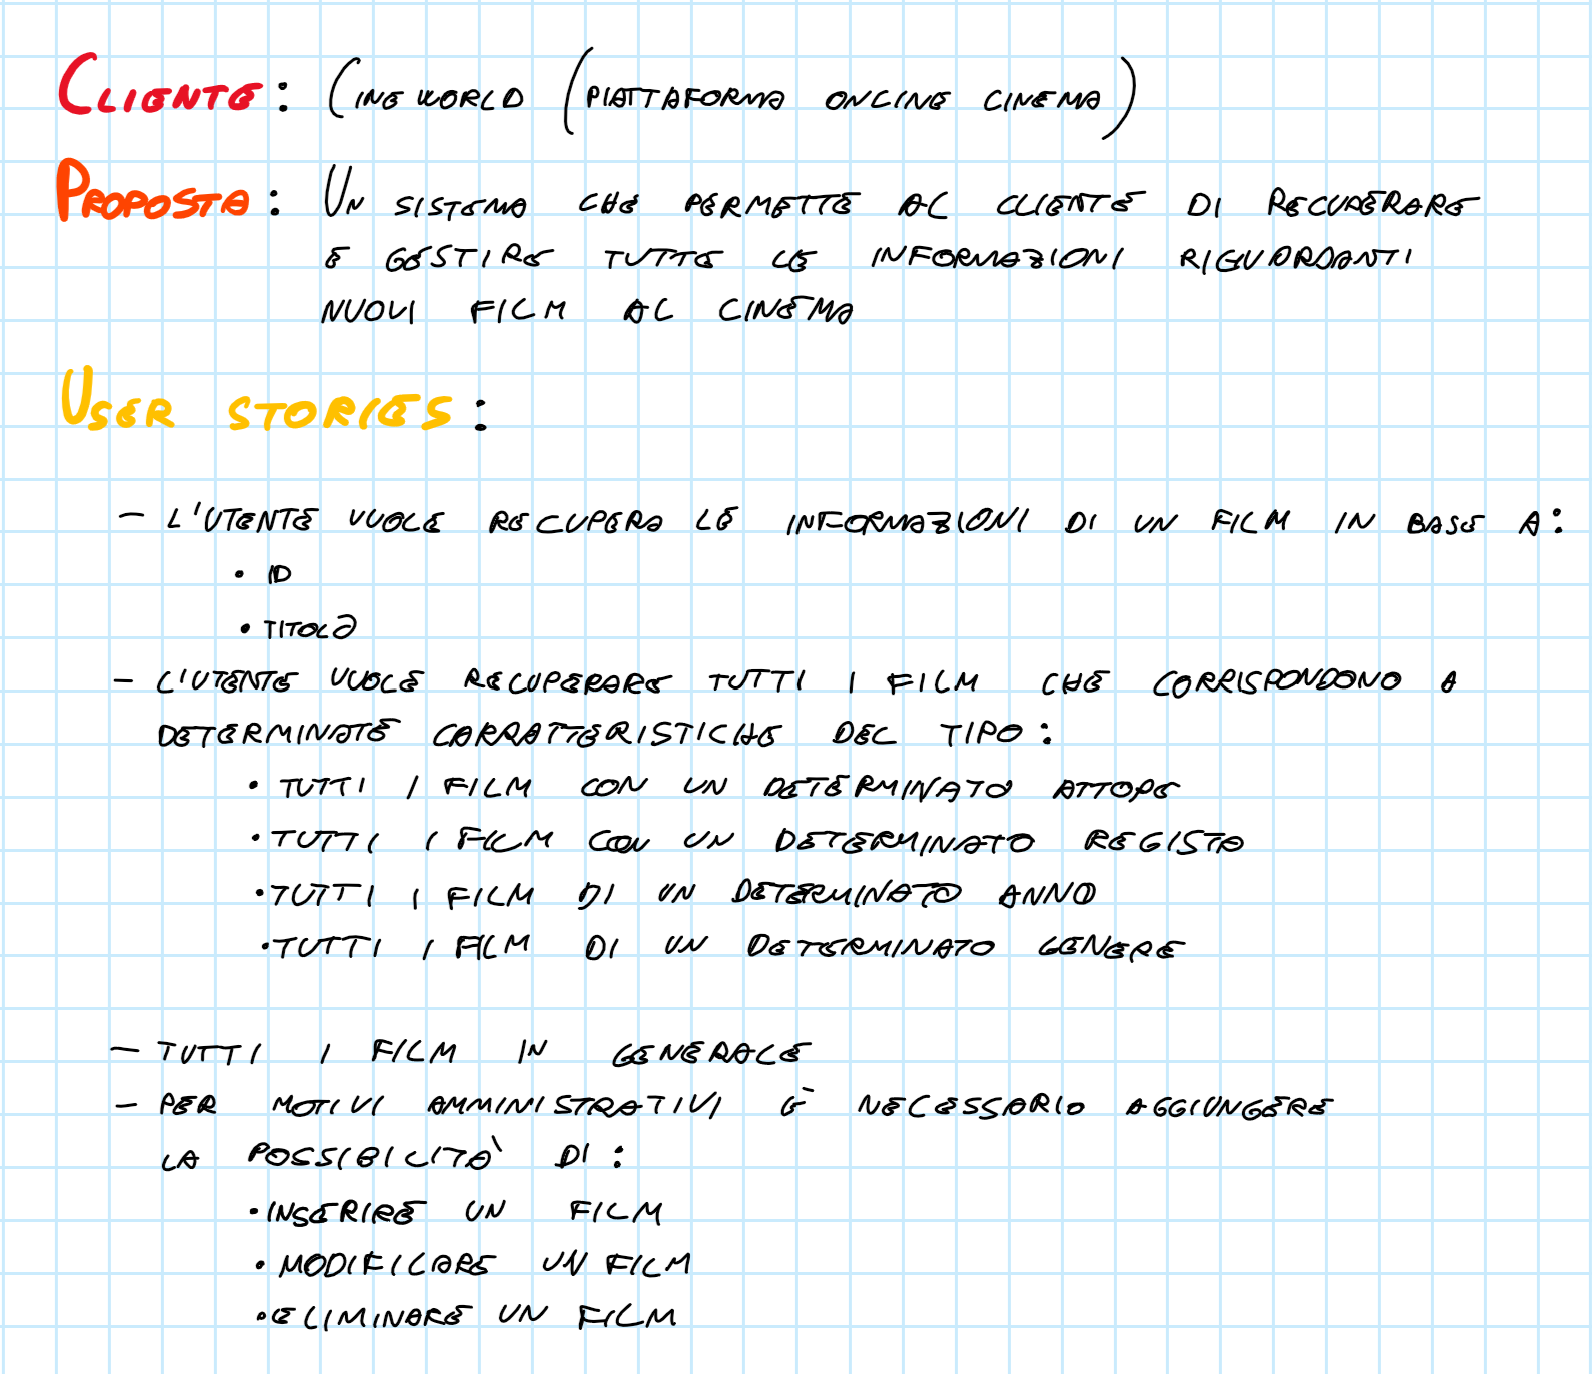 CLIENTE: CINEWORLD (PIATTAFORMA ONLINE CINEMA)
PROPOSTA: UN SISTEMA CHE PERMETTE AL CLIENTE DI RECUPERARE
E GESTIRE TUTTE LE INFORMAZIONI RIGUARDANTI
NUOVI FILM AL CINEMA
USER STORIES:
- L'UTENTE VUOLE RECUPERA LE INFORMAZIONI DI UN FILM IN BASE A:
• ID
• TITOLO
- L'UTENTE VUOLE RECUPERARE TUTTI I FILM CHE CORRISPONDONO A
DETERMINATE CARRATTERISTICHE DEL TIPO:
• TUTTI I FILM CON UN DETERMINATO ATTORE
• TUTTI I FILM CON UN DETERMINATO REGISTA
• TUTTI I FILM DI UN DETERMINATO ANNO
• TUTTI I FILM DI UN DETERMINATO GENERE
- TUTTI I FILM IN GENERALE
- PER MOTIVI AMMINISTRATIVI È NECESSARIO AGGIUNGERE
LA POSSIBILITÀ DI:
• INSERIRE UN FILM
• MODIFICARE UN FILM
• ELIMINARE UN FILM